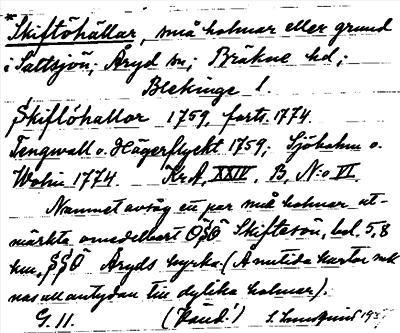 * Skiftöhällar, små holmar eller grund
i Saltsjön; Åryd sn; Bräkne hd;
Blekinge l.
Skiftöhallor 1759, forts. 1774.
Tengwall o. Hägerflyckt 1759; Sjöholm o.
Wolin 1774. Kr.A, XXIV, B, N:o VI.
Namnet avsåg en par små holmar ut-
märkta omedelbart ÖSÖ Skiftesön, bel. 5,8
km, SSÖ Åryds kyrka. (Å nutida kartor sak-
nas all antydan till dylika holmar).
G. 11. (Känd!) 193